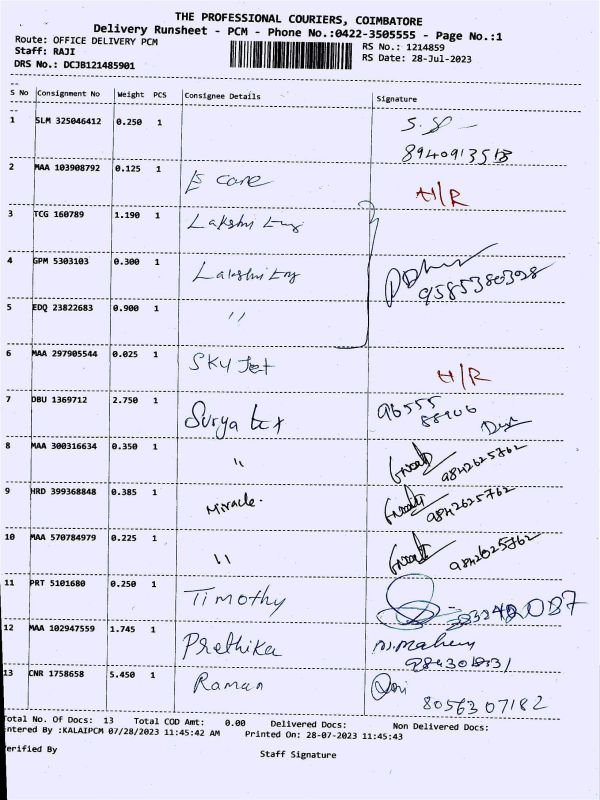 THE PROFESSIONAL COURIERS, COIMBATORE
Delivery Runsheet - PCM - Phone No.:0422-3505555 - Page No.:1
Route: OFFICE DELIVERY PCM
Staff: RAJI
DRS No.: DCJB121485901
RS No.: 1214859
RS Date: 28-Jul-2023
S No Consignment No Weight PCS Consignee Details Signature
1 SLM 325046412 0.250 1
8940913518
2 MAA 103908792 0.125 1 care H/R
3 TCG 160789 1.190 1 Lakshmi Eng
4 GPM 5303103 0.300 1 Lakshmi Eng
9585380328
5 EDQ 23822683 0.900 1 "
6 MAA 297905544 0.025 1 SKY Jet H/R
7 DBU 1369712 2.750 1 Surya tex 96555
88906
8 MAA 300316634 0.350 1 " 9842625762
9 HRD 399368848 0.385 1 Miracle. 9842625762
10 MAA 570784979 0.225 1 " 9842625762
11 PRT 5101680 0.250 1 Timothy
12 MAA 102947559 1.745 1 Prethika
13 CNR 1758658 5.450 1 Raman
8056307182
Total No. Of Docs: 13 Total COD Amt: 0.00 Delivered Docs: Non Delivered Docs:
ntered By :KALAIPCM 07/28/2023 11:45:42 AM Printed On: 28-07-2023 11:45:43
erified By Staff Signature